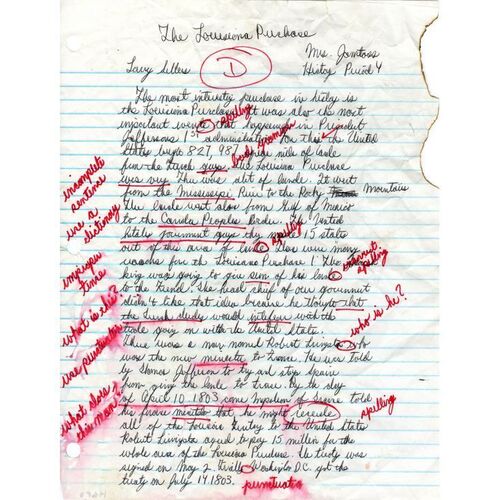 The Louisiona Purchase
Mrs. Jamtoss
Larry Sellers
D
History Period 4
The most intersty purchase in histoy is
the Louisiona Purchase. It was also the most
important
spelling
that happened in President
Jeffersons 1st administration. For this the United
bad grammar
States bught 827, 987
mile of lande
from the Lurch guys. The Louisiona Purchase
incomplete
sentence
was very
This was alot of lande. It went
from the Mississippi River to the Rocky
Mountains
use a
dictionary
The lande went also from Gulf of Mexico
to the Canida Peoples
The United
States government guys they
15 state
spelling
out of this area of land.
were many
improper
tense
reasons for the Louisiona Purchase 1
incorrect
spelling
king was going to give som of his land
to the french. The head chief of our government
what is this?
didn't take that idea because he thought that
the
would interfer with the
who is he?
trade going on with the United State.
use puntuation
There was a man named Robert Livingsta who
was the new minestre to France. He was told
by Thomas Jefferson to try and stop Spain
from giving the lande to France. By the day
of April 10 1803
of France told
what does
this mean?
his
that he might
spelling
all of the Louisiona Teritoy to the United States
Robert Livingsta agred to pay 15 million for the
whole area of the Louisiona Purchase. The treaty was
signed on May 2.
Washington D.C. got the
treaty on July 14 1803.
puntuation